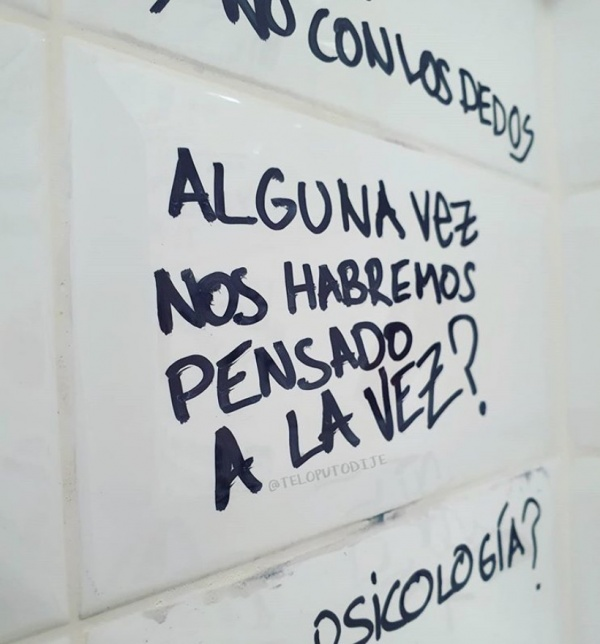 NO CON LOS DEDOS
ALGUNA VEZ
NOS HABREMOS
PENSADO
A LA VEZ?
@TELOPUTODIJE
PSICOLOGÍA?